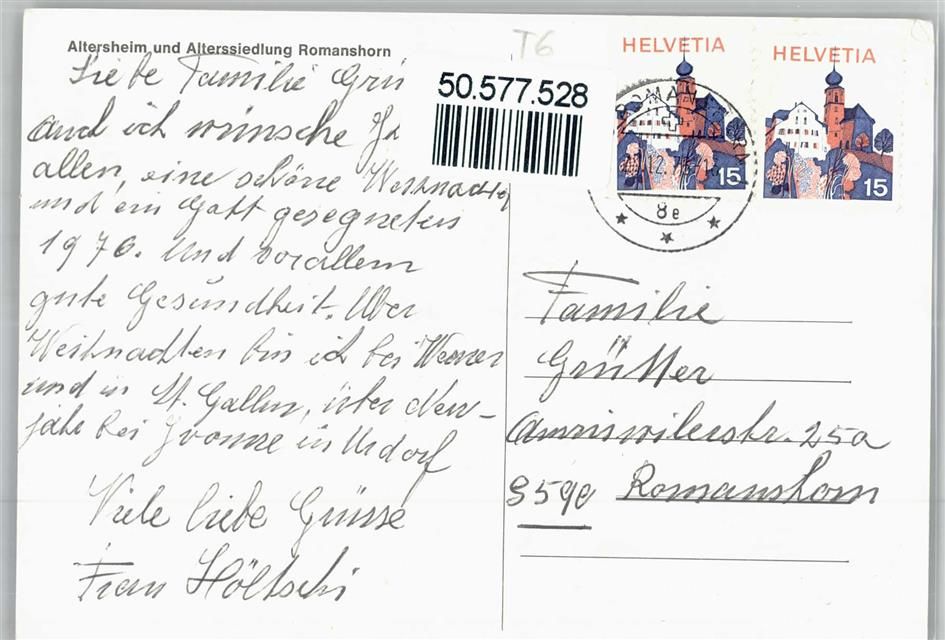 Altersheim und Alterssiedlung Romanshorn
T6
50.577.528
HELVETIA
15
HELVETIA
15
8e
Liebe Familie Grü
auch ich wünsche
allen, eine schöne Weihnachten
und ein Gott gesegnetes
1976. Und vorallem
gute Gesundheit. Über
Weihnachten bin ich bei Werner
und in St. Gallen, über Neu-
jahr bei Yvonne in Urdorf
Viele liebe Grüsse
Frau
Familie
Grütter
Amriswilerstr. 25a
8590 Romanshorn